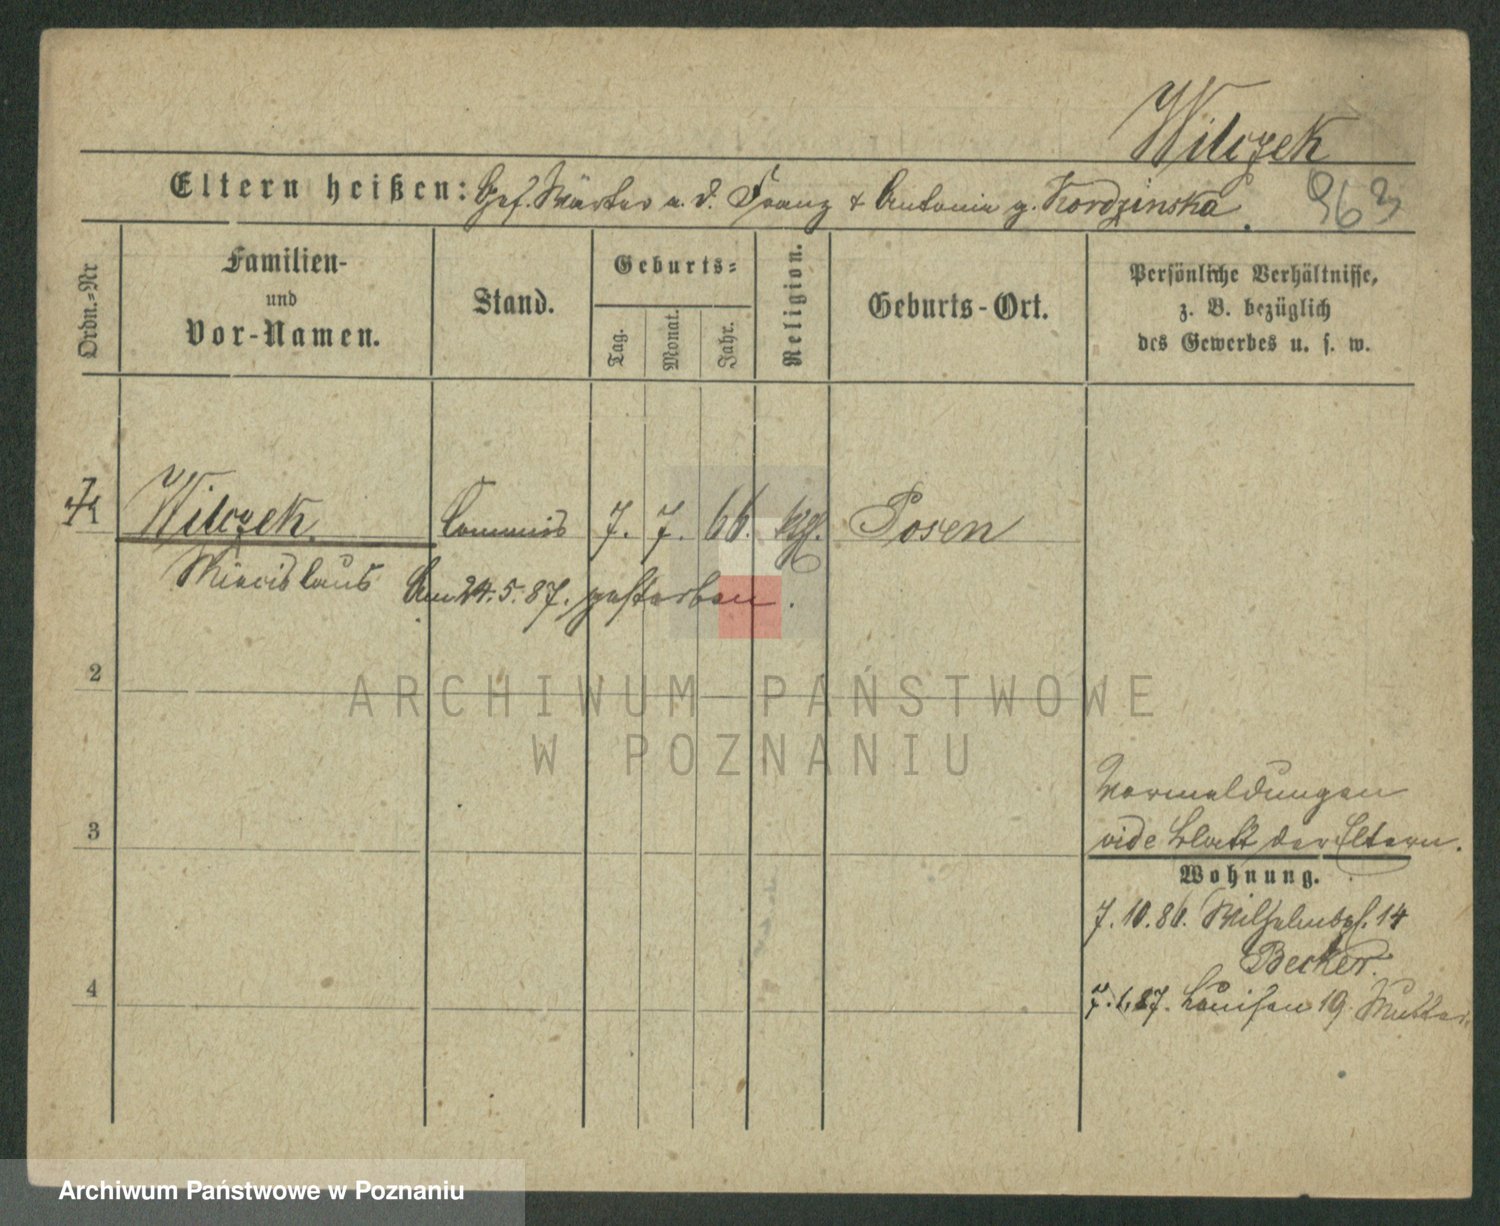 Wilczek
Eltern heißen: Gef. Wärter a. D. Franz & Antonie g. Kordzinska.
963
Ordn.=Nr
Familien-
und
Vor-Namen.
Stand.
Geburts=
Tag.
Monat.
Jahr.
Religion.
Geburts-Ort.
Persönliche Verhältnisse,
z. B. bezüglich
des Gewerbes u. s. w.
1 Wilczek Commis 7. 7. 66. kth. Posen
Miecislaus Am 24.5.87. gestorben.
2
ARCHIWUM PAŃSTWOWE
W POZNANIU
3
4
Vormeldungen
vide Blatt der Eltern.
Wohnung.
7.10.86. Wilhelmspl. 14
Becker.
7.1.87. Louisen 19. Mutter.
Archiwum Państwowe w Poznaniu